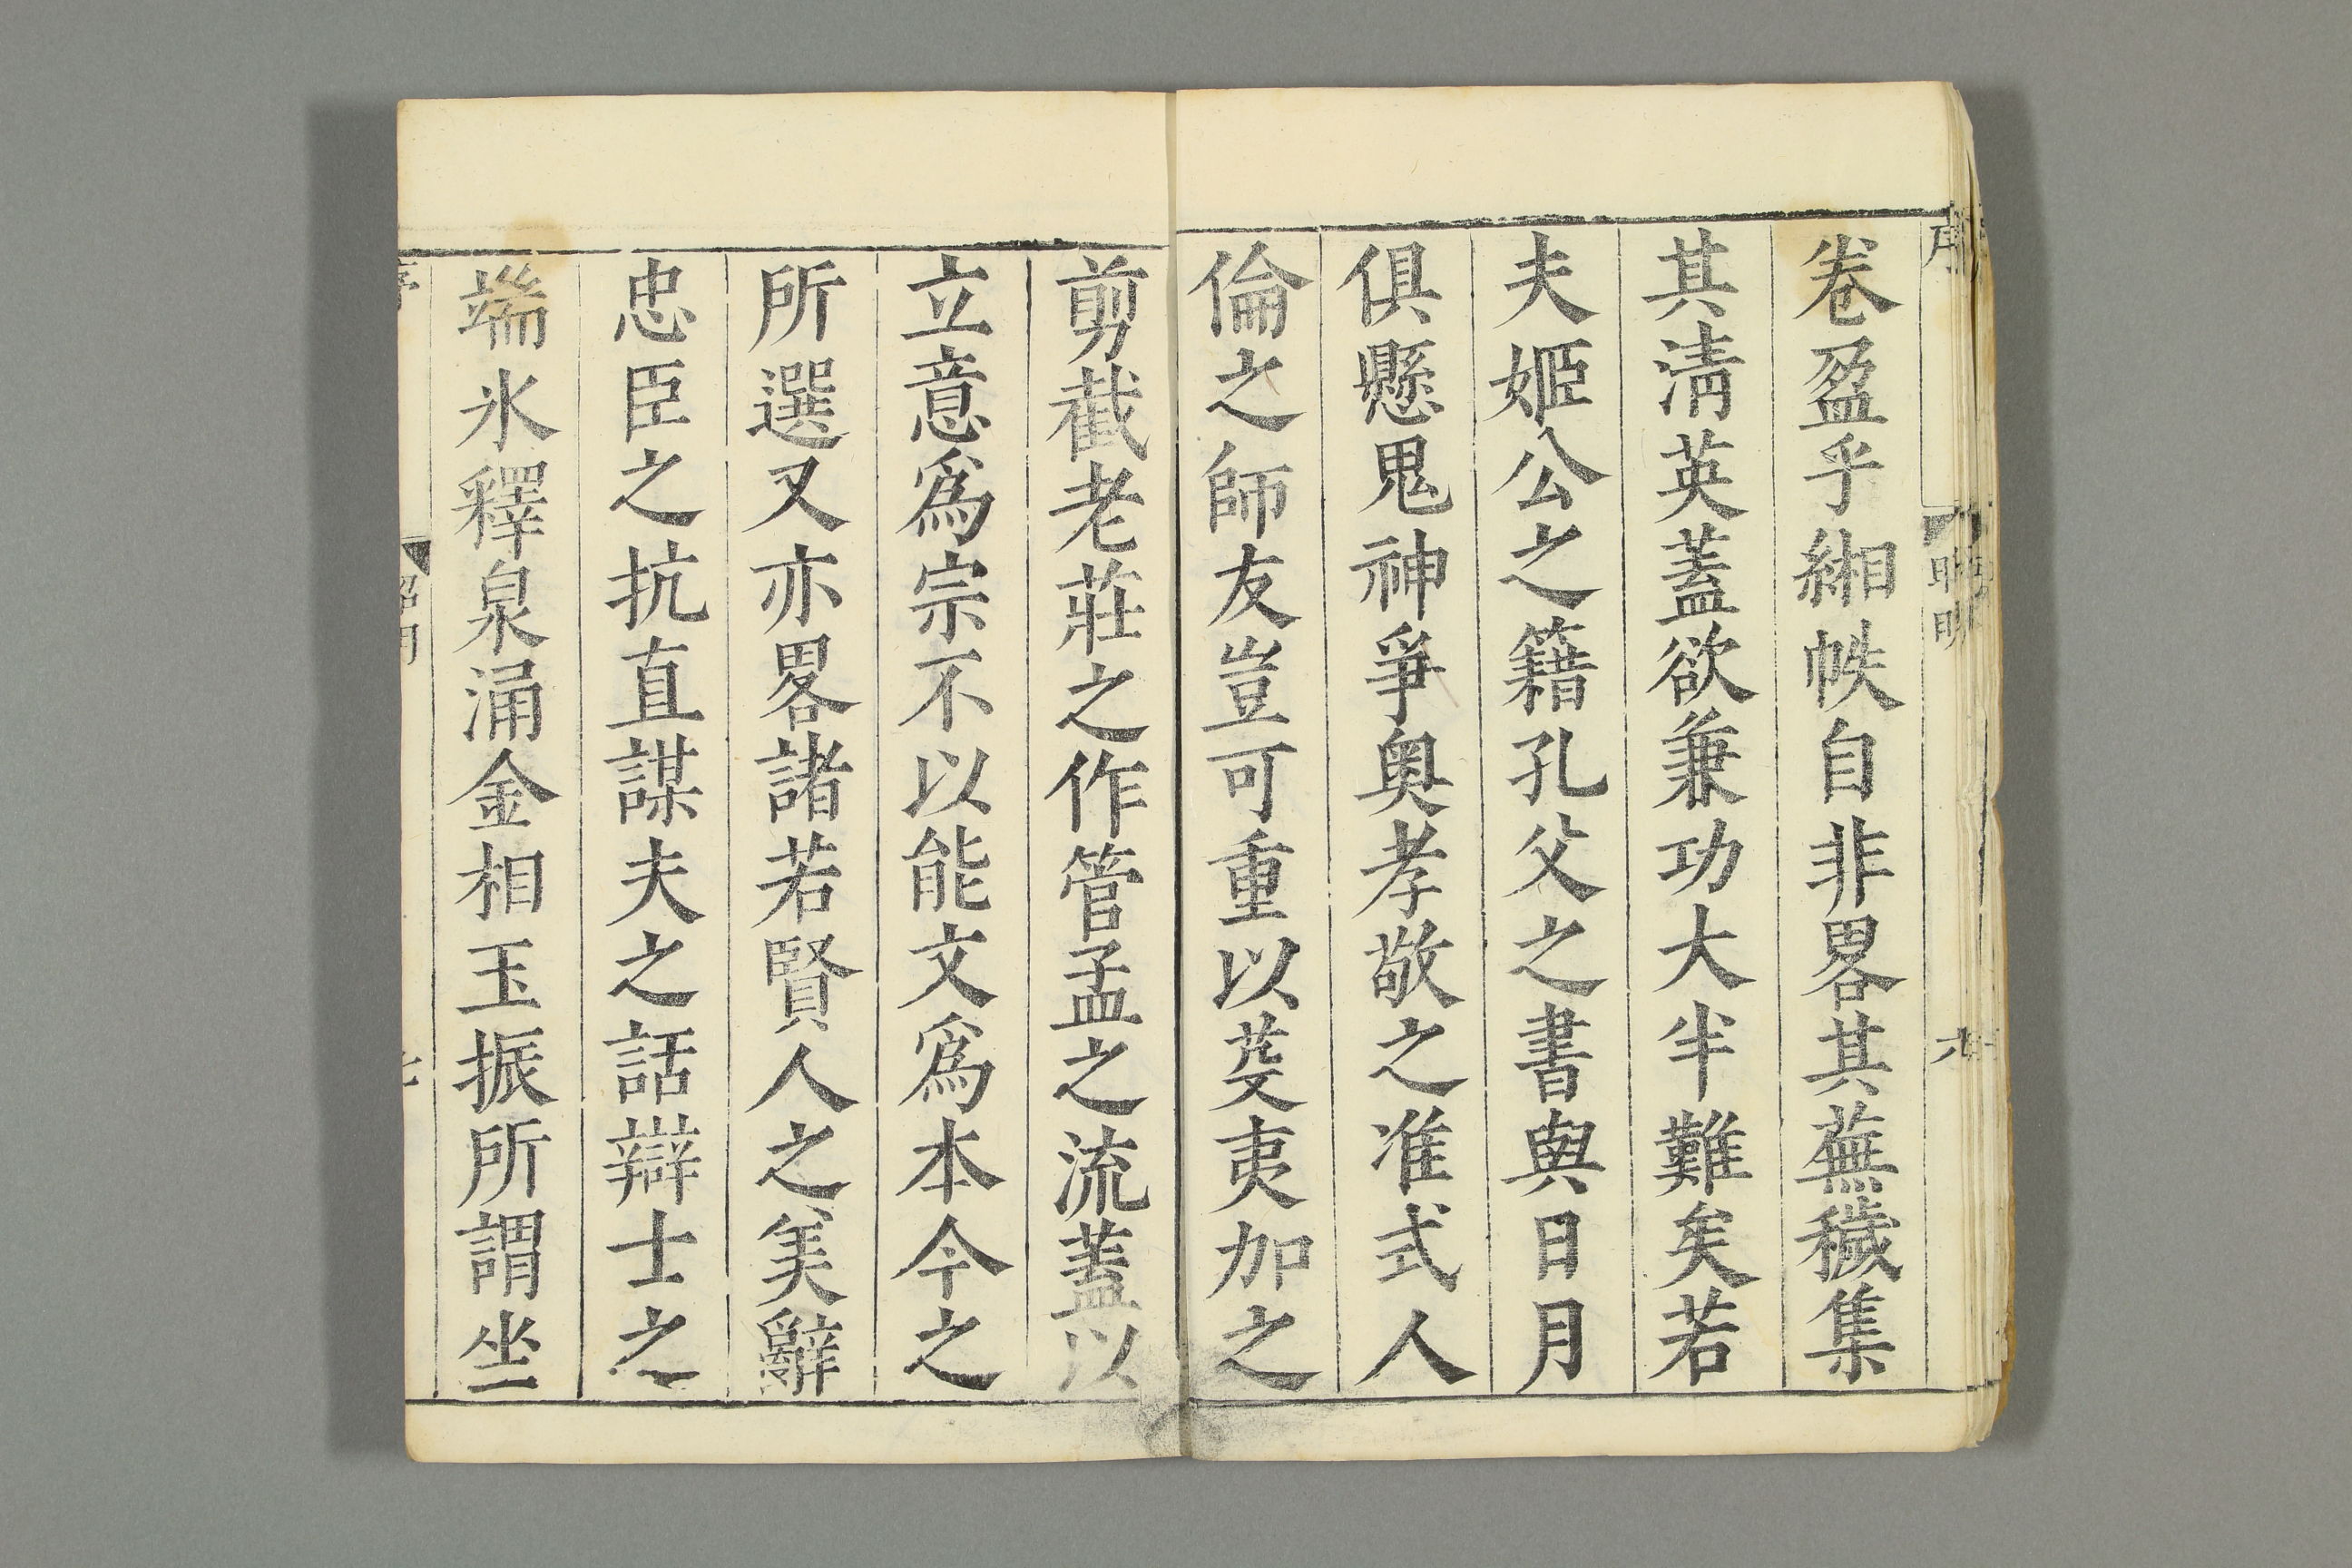 序
昭明
六
卷盈乎緗帙自非畧其蕪穢集
其淸英蓋欲兼功太半難矣若
夫姬公之籍孔父之書與日月
俱懸鬼神爭奧孝敬之准式人
倫之師友豈可重以芟夷加之
剪截老莊之作管孟之流蓋以
立意爲宗不以能文爲本今之
所選又亦畧諸若賢人之美辭
忠臣之抗直謀夫之話辯士之
端氷釋泉涌金相玉振所謂坐